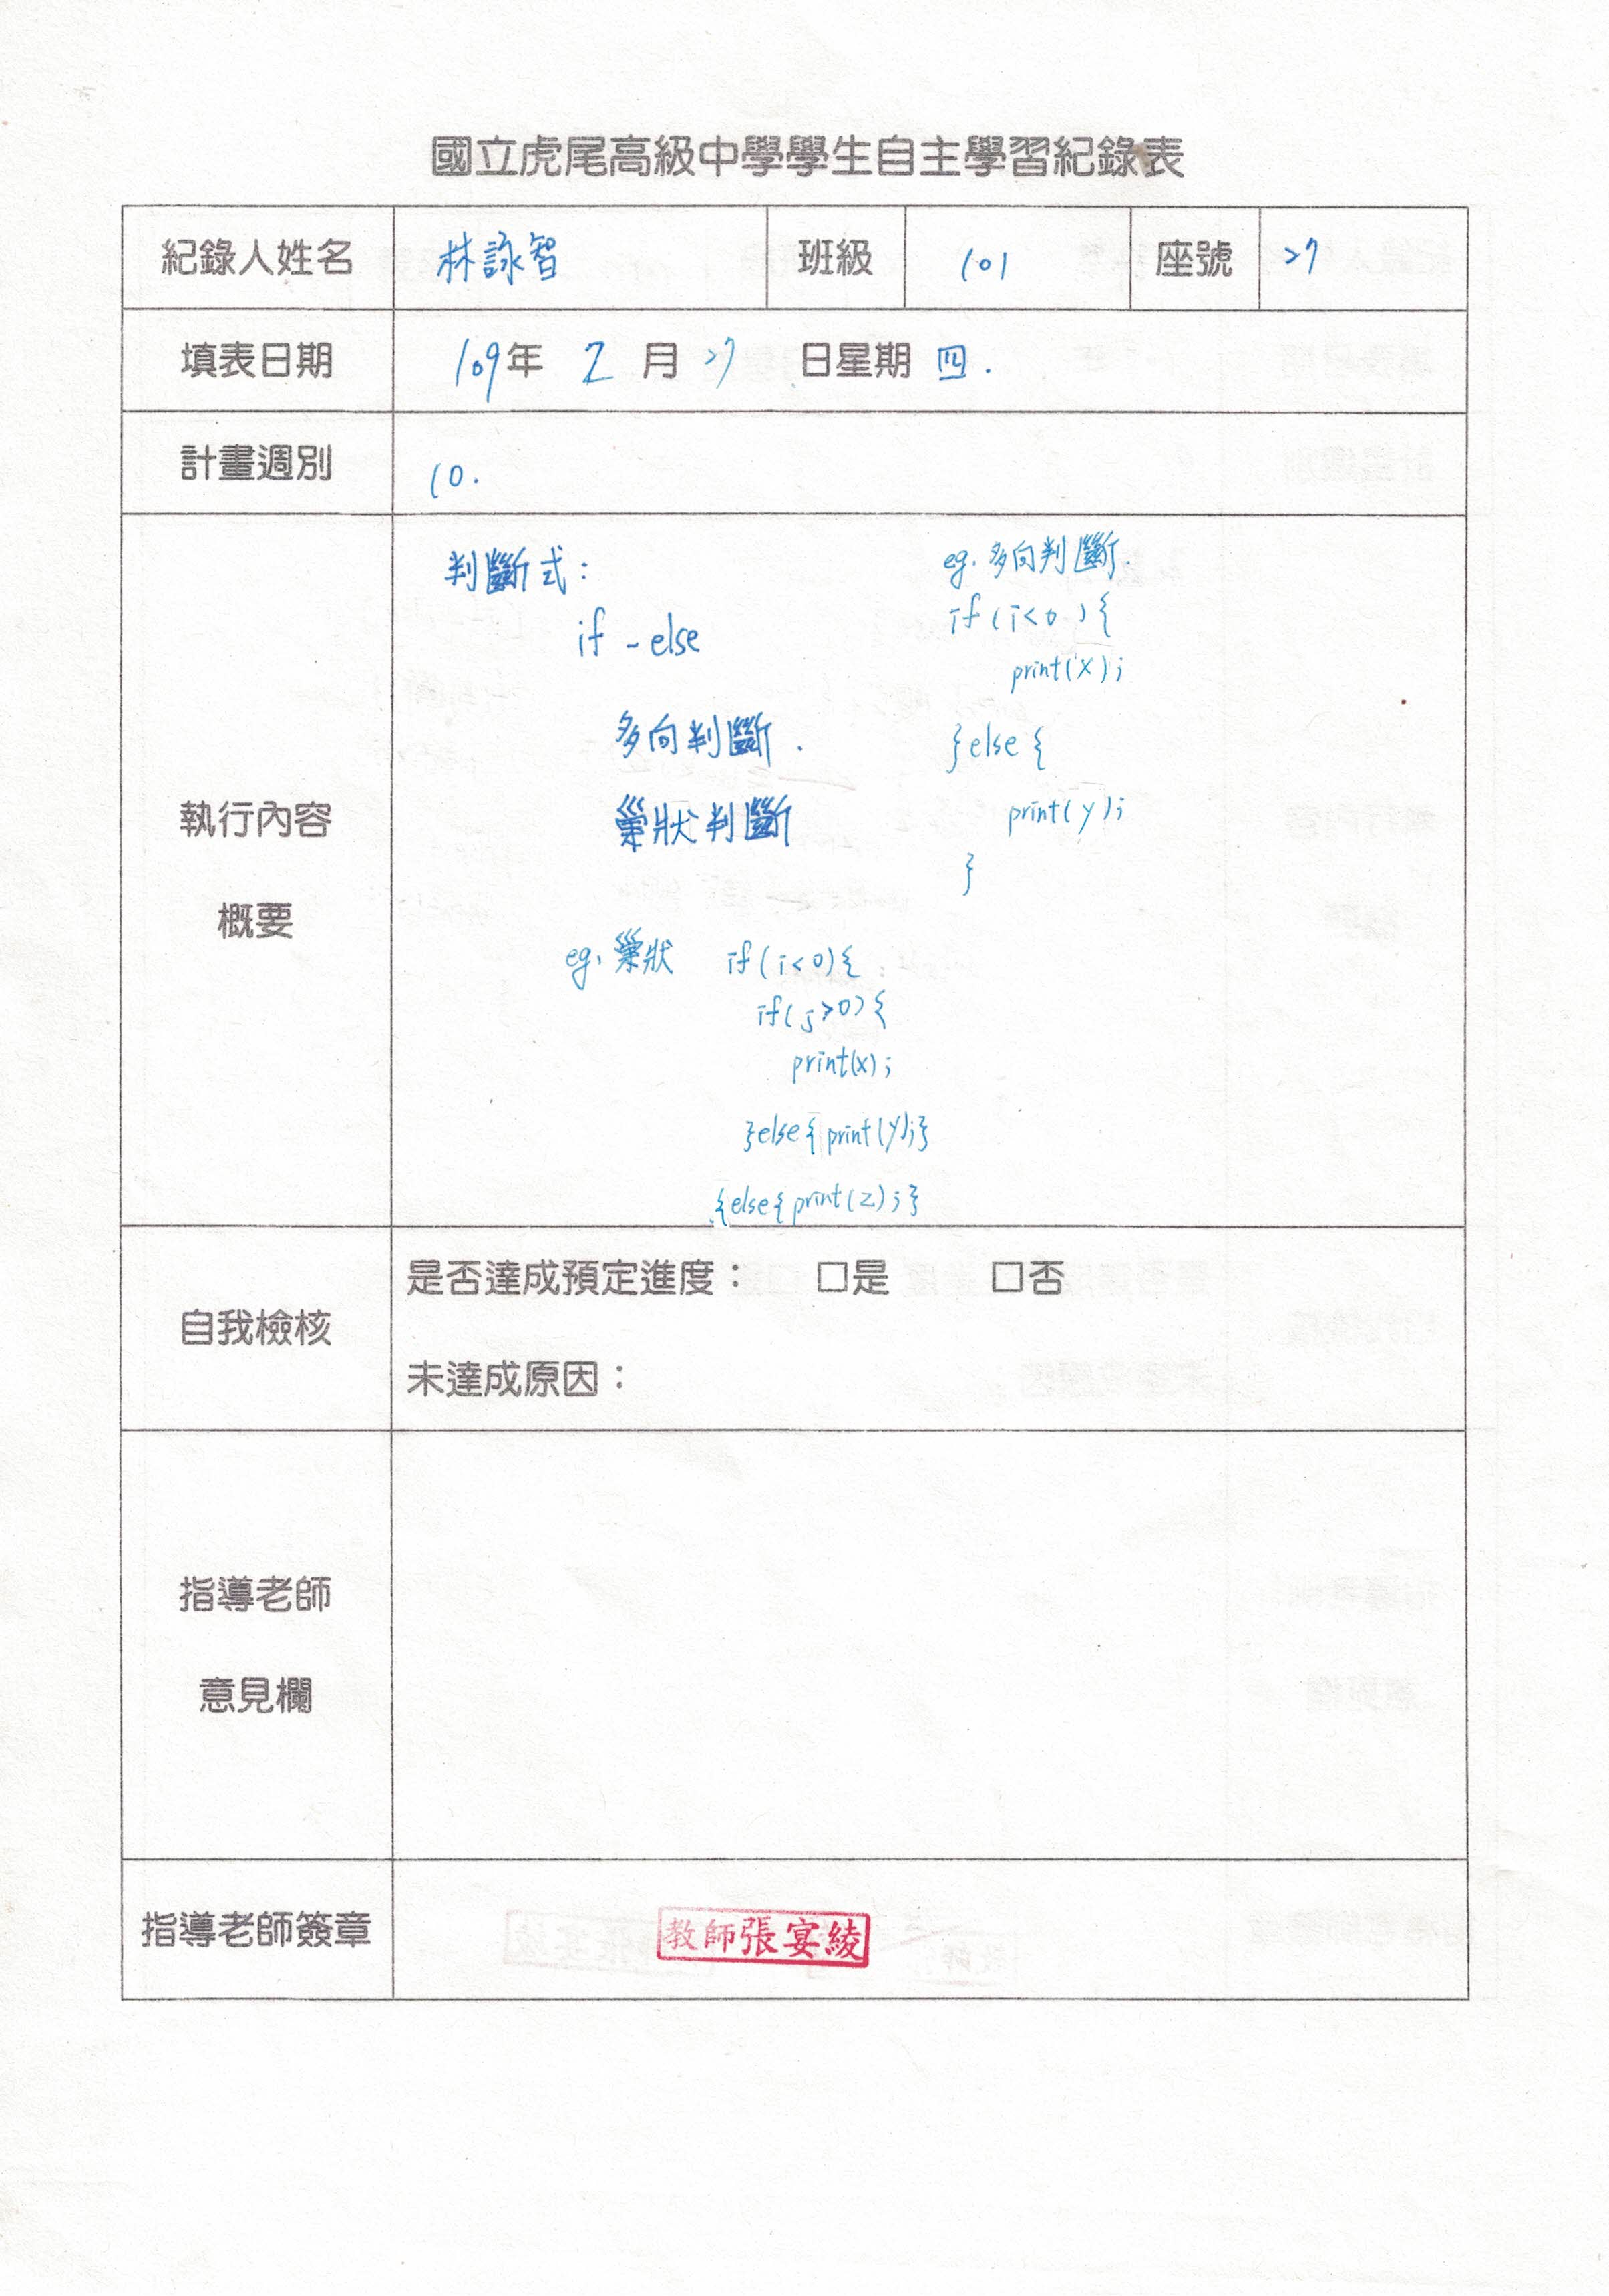 國立虎尾高級中學學生自主學習紀錄表
紀錄人姓名 林詠智 班級 101 座號 27
填表日期 109年 2 月 27 日星期 四.
計畫週別 10.
執行內容
概要
判斷式:
if - else
多向判斷.
巢狀判斷
eg. 多向判斷.
if (i<0) {
print(x);
}else {
print(y);
}
eg. 巢狀 if (i<0) {
if(j>0) {
print(x);
}else{print(y);}
{else{print(z);}
自我檢核
是否達成預定進度： □是 □否
未達成原因：
指導老師
意見欄
指導老師簽章 教師張宴綾